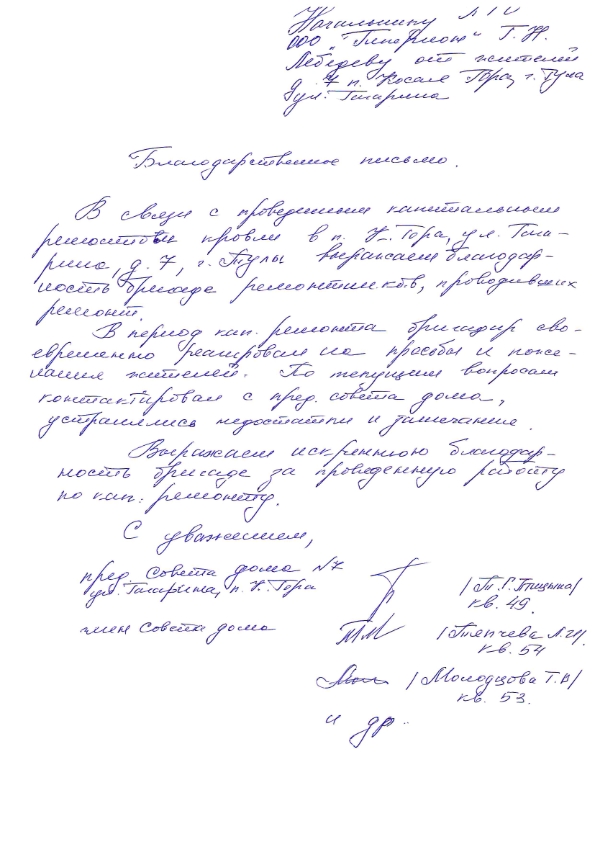 Начальнику
ООО "Гиперион" Г.Н.
Лебедеву от жителей
д. 7 п. Косая Гора, г. Тула
ул. Гагарина
Благодарственное письмо.
В связи с проведенным капитальным
ремонтом кровли в п. К. Гора, ул. Гага-
рина, д. 7, г. Тулы выражаем благодар-
ность бригаде ремонтников, проводивших
ремонт.
В период кап. ремонта бригадир сво-
евременно реагировал на просьбы и поже-
лания жителей. По текущим вопросам
контактировал с пред. совета дома,
устранялись недостатки и замечание.
Выражаем искреннюю благодар-
ность бригаде за проведенную работу
по кап. ремонту.
С уважением,
пред. Совета дома №7
ул. Гагарина, п. К. Гора
/ Птицына /
кв. 49.
член Совета дома
/ Тяпчева Л.
кв. 54
/ Молодцова Т.В /
кв. 53.
и др.